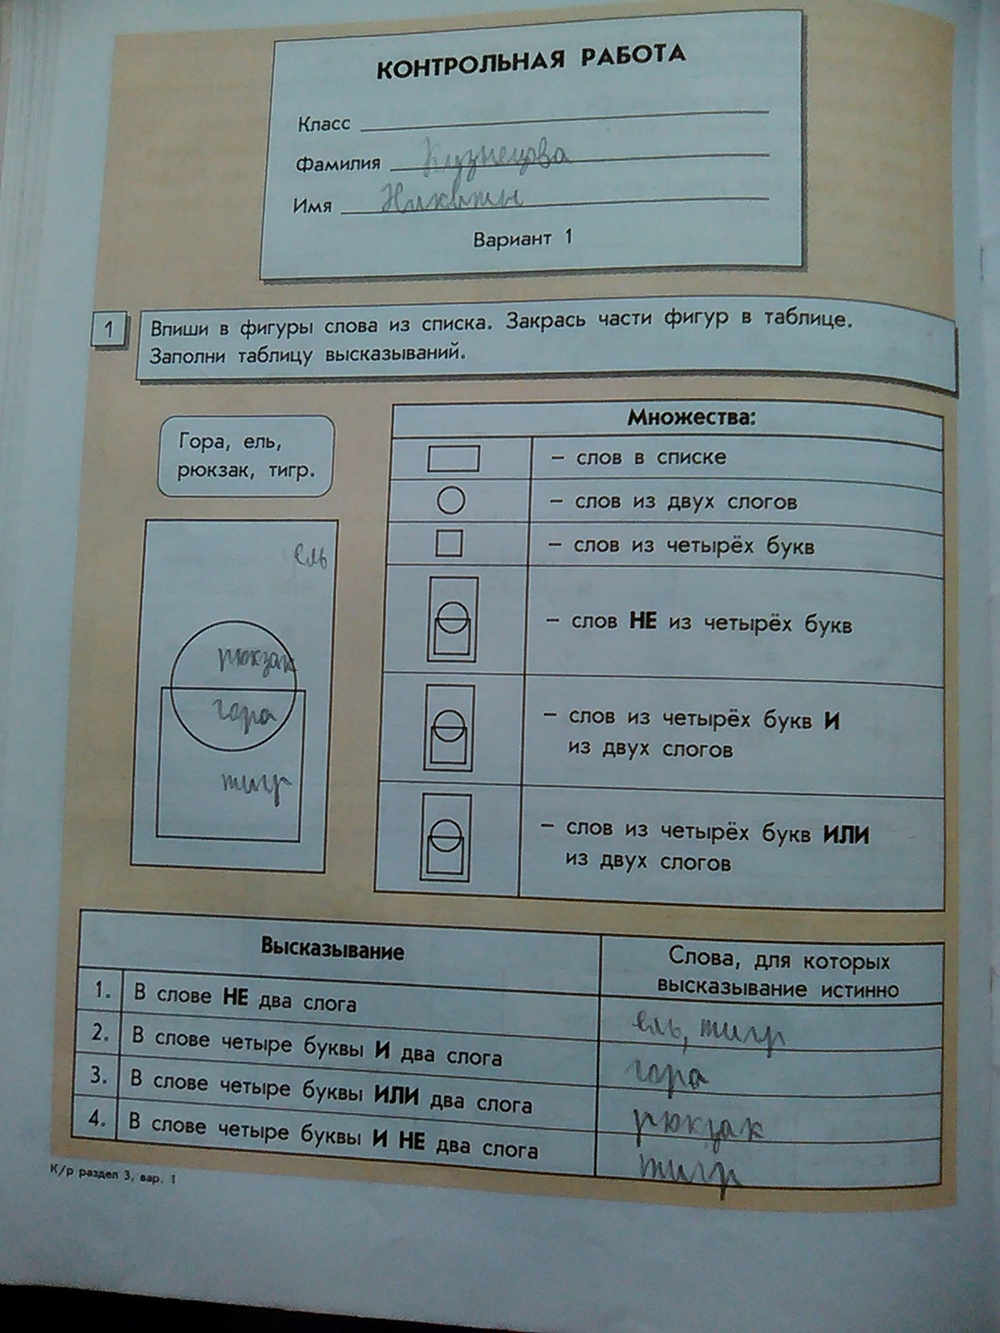 КОНТРОЛЬНАЯ РАБОТА
Класс
Фамилия Кузнецова
Имя Никиты
Вариант 1
1
Впиши в фигуры слова из списка. Закрась части фигур в таблице.
Заполни таблицу высказываний.
Гора, ель,
рюкзак, тигр.
ель
рюкзак
гора
тигр
Множества:
– слов в списке
– слов из двух слогов
– слов из четырёх букв
– слов НЕ из четырёх букв
– слов из четырёх букв И
из двух слогов
– слов из четырёх букв ИЛИ
из двух слогов
Высказывание
Слова, для которых
высказывание истинно
1. В слове НЕ два слога
ель, тигр
2. В слове четыре буквы И два слога
гора
3. В слове четыре буквы ИЛИ два слога
рюкзак
4. В слове четыре буквы И НЕ два слога
тигр
К/р раздел 3, вар. 1